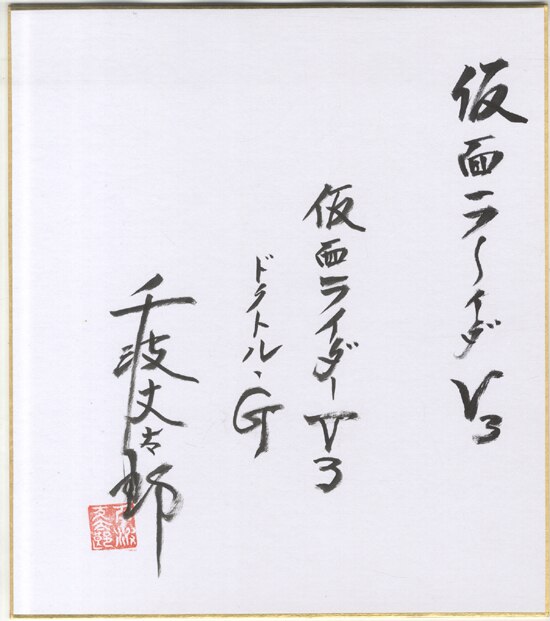 仮面ラーイダV3
仮面ライダーV3
ドクトル・G
千波丈太郎
千波丈太郎